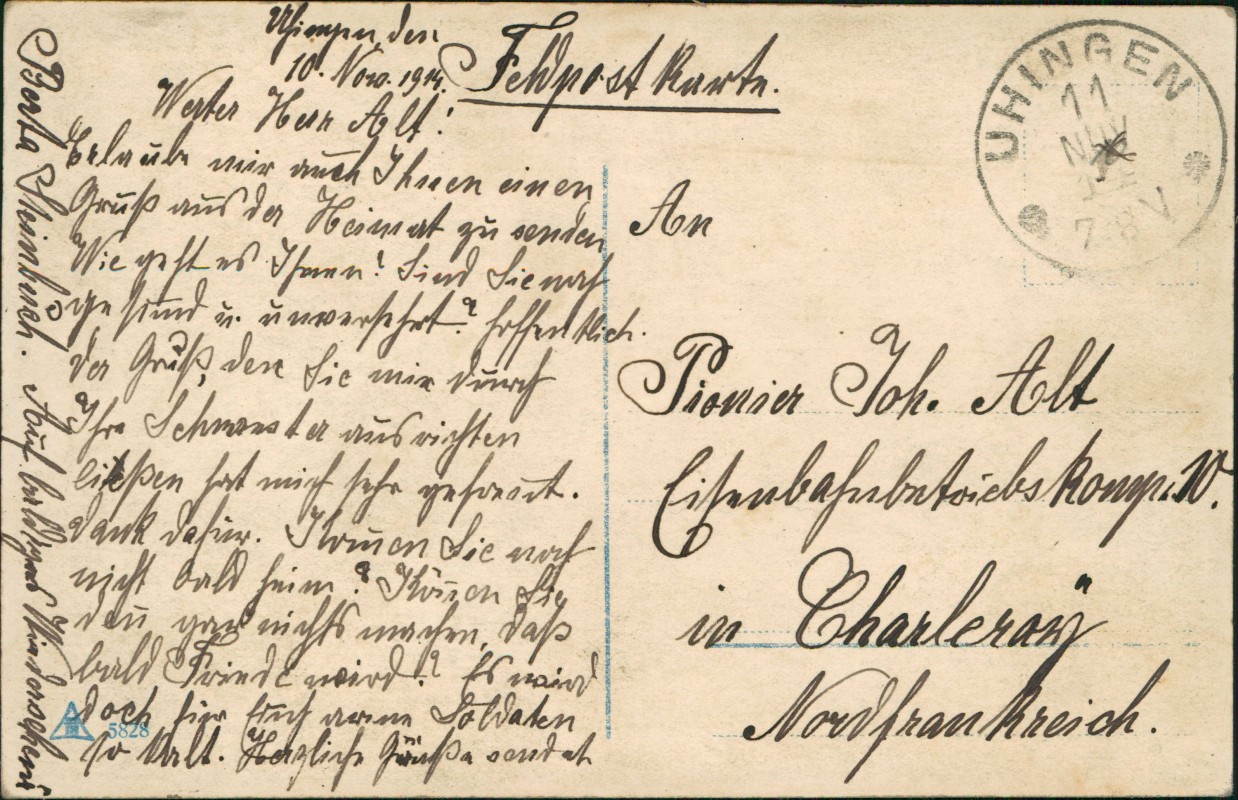 Uhingen den
10. Nov. 1914.
Werter Herr Alt!
Erlaube mir auch Ihnen einen
Gruß aus der Heimat zu senden
Wie geht es Ihnen? Sind Sie noch
gesund u. unversehrt? hoffentlich.
der Gruß, den Sie mir durch
Ihre Schwester ausrichten
ließen hat mich sehr gefreut.
dank dafür. Komen Sie noch
nicht bald heim? Könen Sie
den gar nichts machen, daß
bald Friede wird? Es wird
doch für Euch arme Soldaten
so kalt. Herzliche Grüße sendet
Berta Steinbuch. Auf baldiges Wiedersehen
5828
Feldpostkarte.
UHINGEN
11
NOV
7-8 V
An
Pionier Joh. Alt
Eisenbahnbetriebskomp. IV.
in Charleroy
Nordfrankreich.